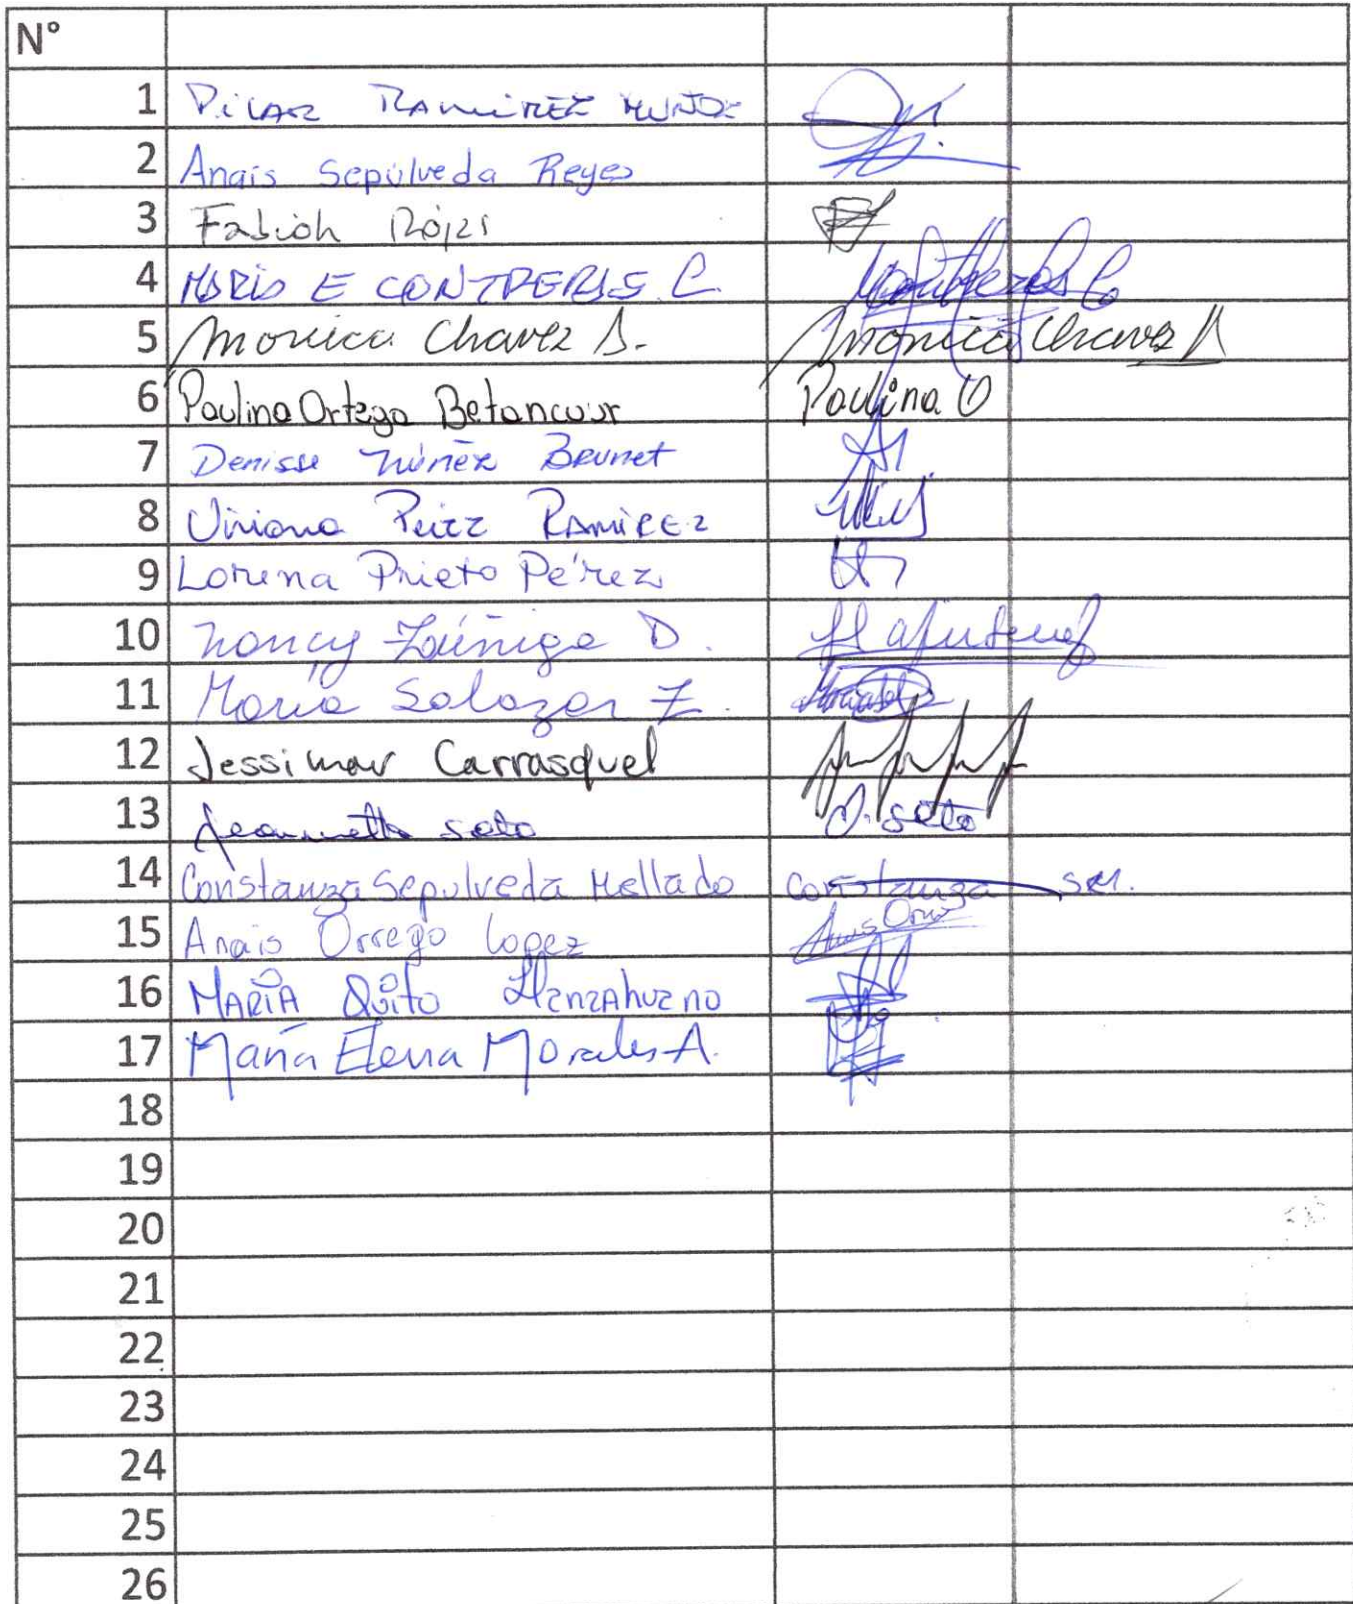 N°
1 Pilar Ramirez Muñoz
2 Anais Sepúlveda Reyes
3 Fabiola Rojas
4 MARIA E CONTRERAS C.
5 Monica Chavez S. Monica Chavez
6 Paulina Ortega Betancour Paulina O
7 Denisse Núñez Brunet
8 Viviana Peirz RAMIREZ
9 Lorena Prieto Pérez
10 Nancy Zúñiga D.
11 Maria Salazar Z.
12 Jessimar Carrasquel
13 Jeannette Soto J. Soto
14 Constanza Sepulveda Mellado Constanza SM.
15 Anais Orrego Lopez
16 MARIA Quito
17 María Elena Morales A.
18
19
20
21
22
23
24
25
26